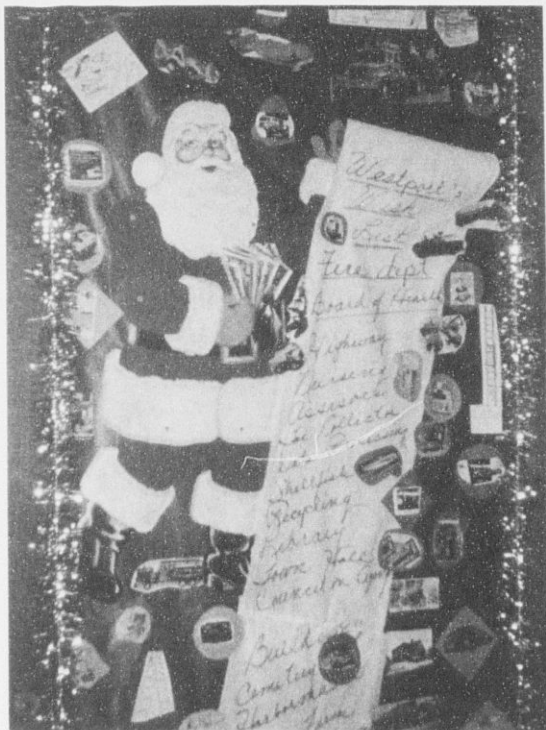 Westport's
Best
Fire Dept
Board of Health
Highway
Nursing
Assessors
Tax Collector
Shellfish
Recycling
Library
Town Hall
Council on Aging
Building
Cemetery
Harbormaster